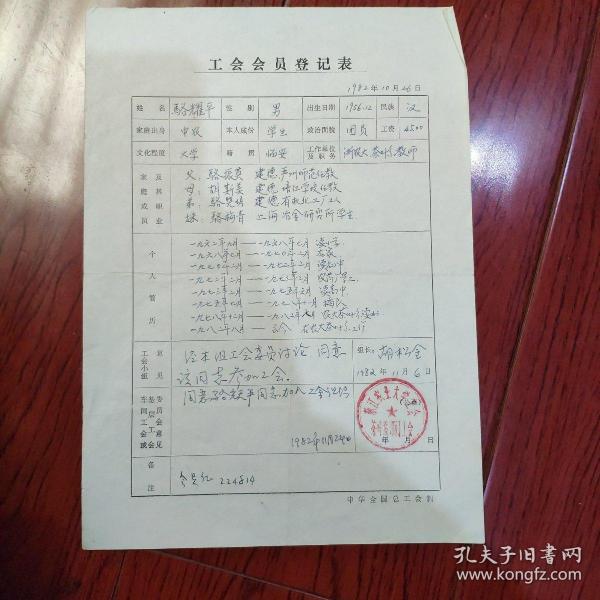 工会会员登记表
1982年10月26日
姓名 骆耀平 性别 男 出生日期 1956.12 民族 汉
家庭出身 中农 本人成份 学生 政治面貌 团员 工资 45.00
文化程度 大学 籍贯 临安 工作单位及职务 浙农大茶叶系教师
家庭成员及其职业
父：骆振
母：胡
弟：骆 建德有机化工厂工人
妹：骆梅青 上海冶金研究所学生
个人简历
一九六二年九月——一九六八年七月 读小学
一九六八年七月——一九七〇年二月 在家
一九七〇年二月——一九七二年二月 读初中
一九七二年二月——一九七三年二月
一九七三年二月——一九七五年七月 读高中
一九七五年七月——一九七八年十月 插队
一九七八年十月——一九八二年八月 农大茶叶系读书
一九八二年八月——至今 在农大茶叶系工作
工会小组意见 经本组工会委员讨论 同意 组长：胡松全
该同志参加工会。 1982年11月6日
车间工会或基层工会委员会意见 同意骆耀平同志加入工会组织
浙江农业大学
1982年11月24日 年 月 日
备注 会员纪 224814
中华全国总工会制
孔夫子旧书网
www.kongfz.com